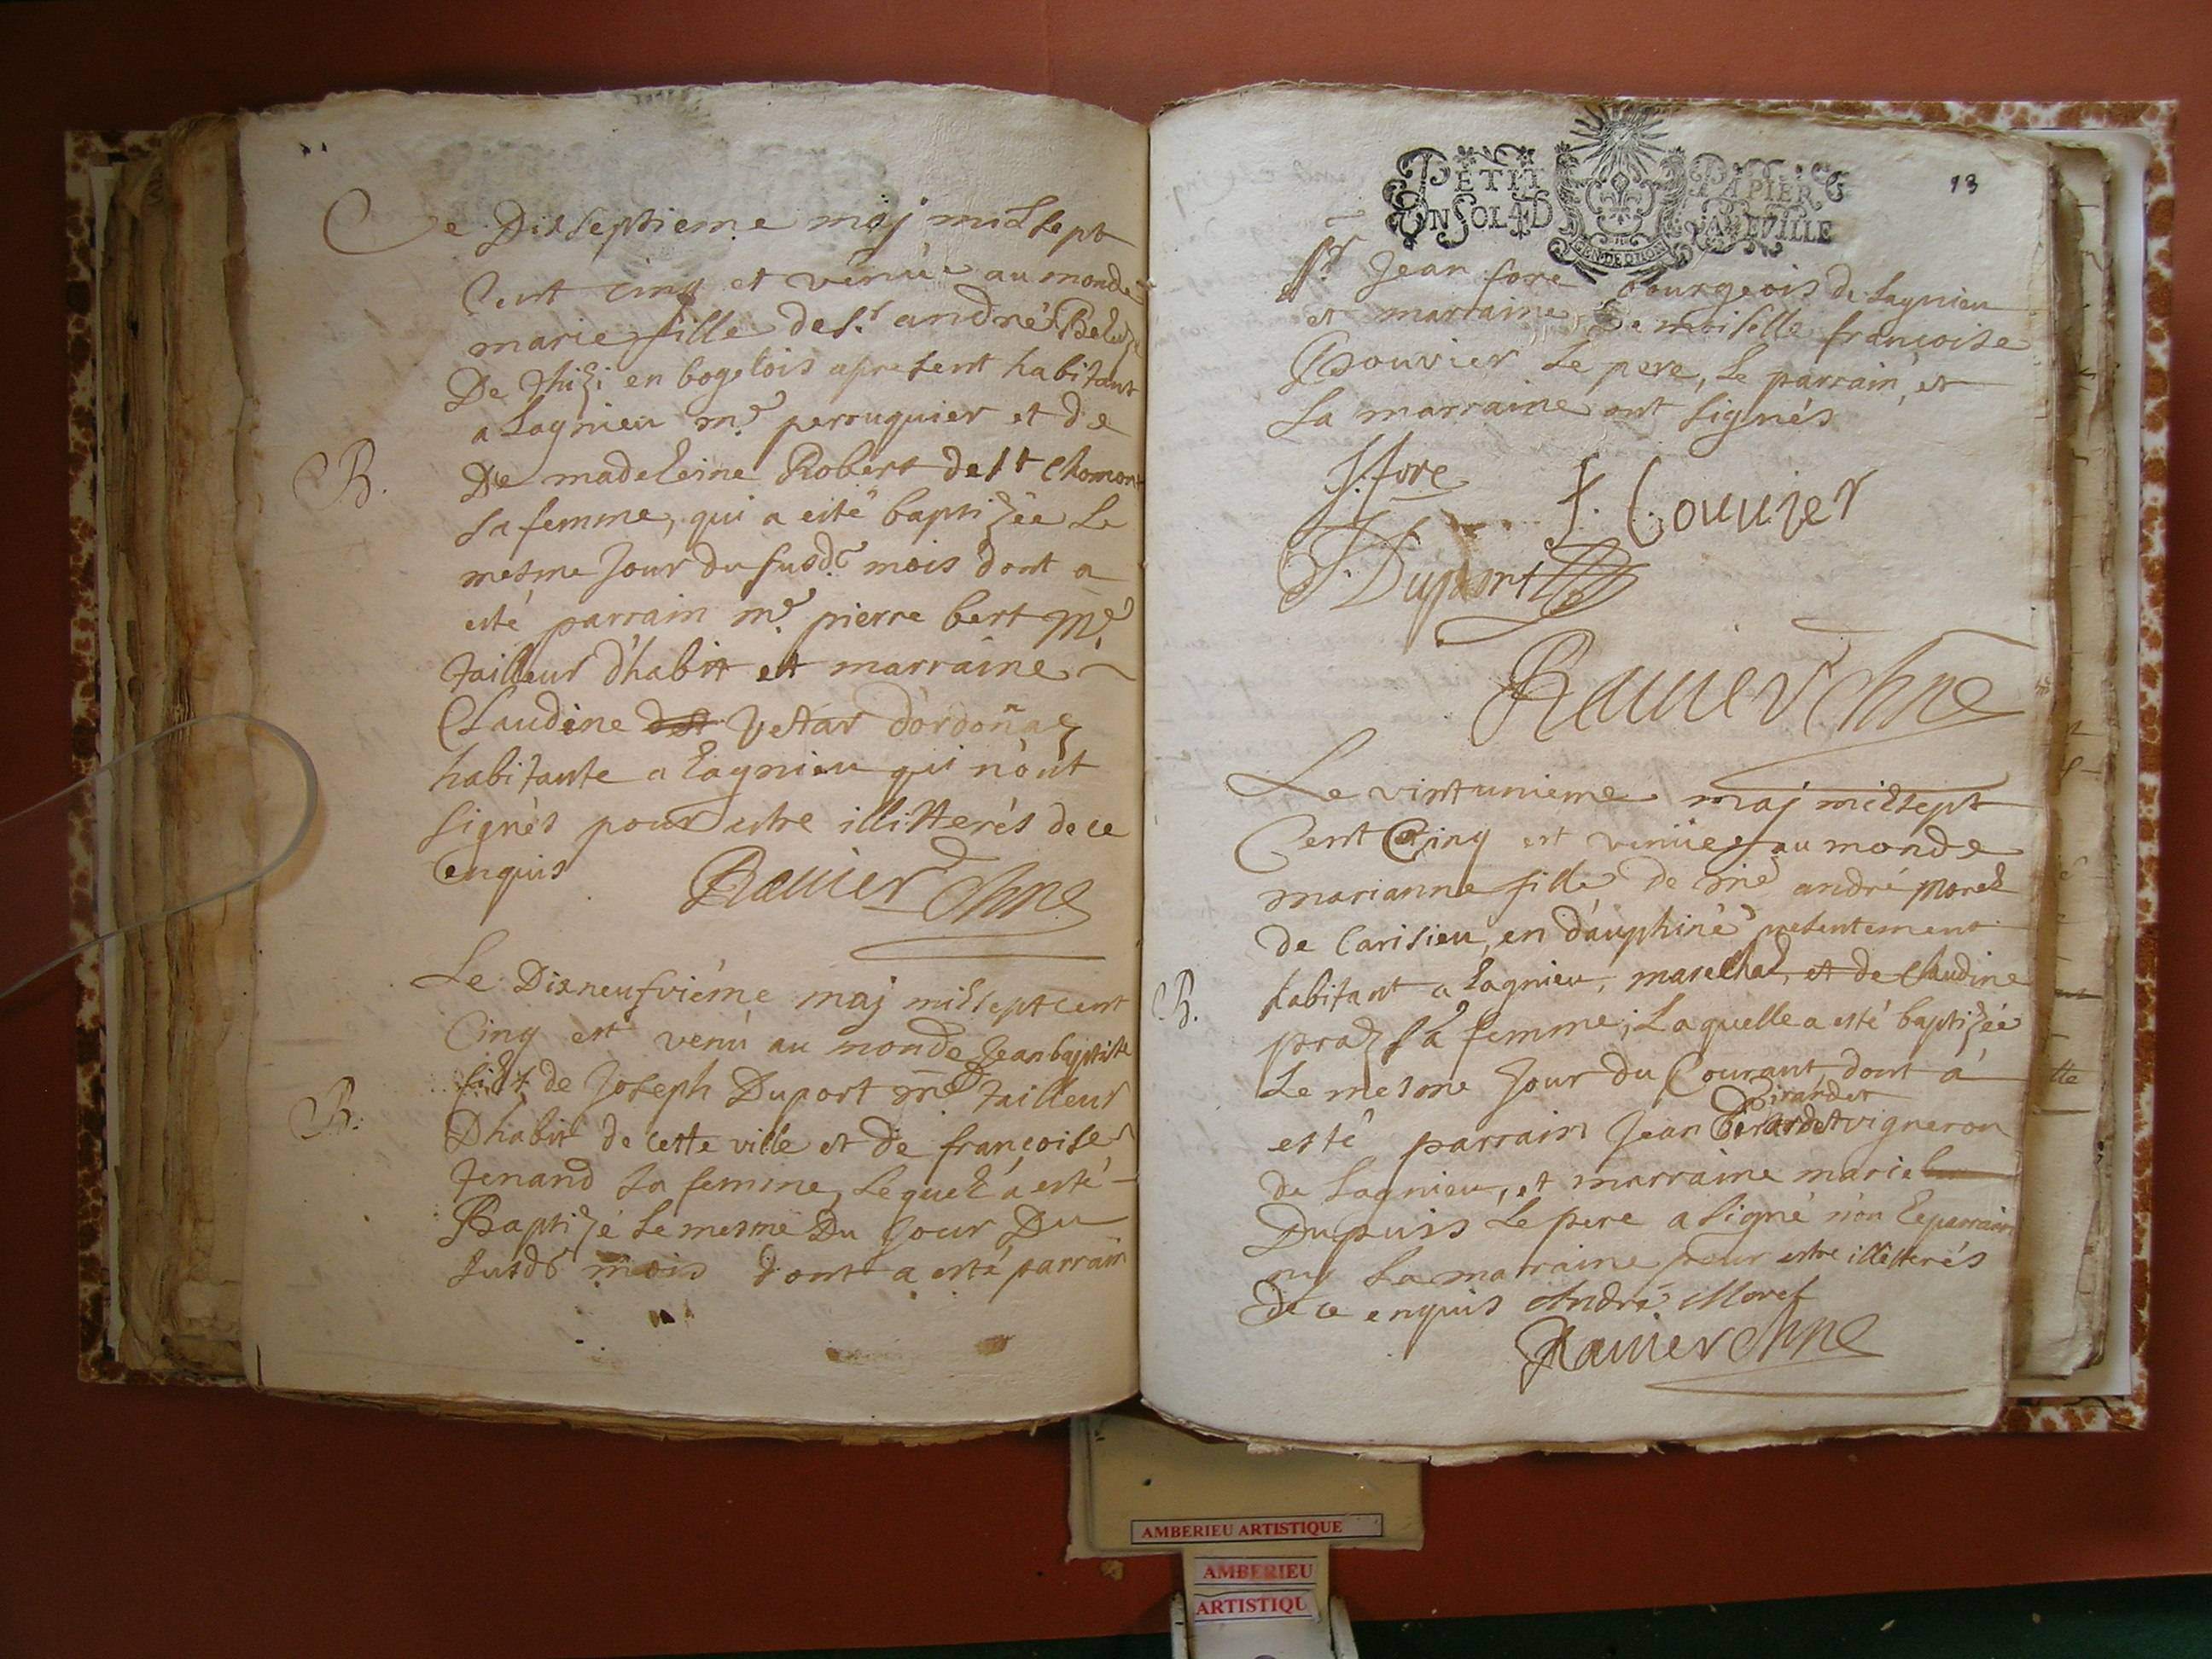 Ce Dixseptieme maj mil sept
Cent cinq et venüe au monde
marie fille de s.r andré
De thizi en bogelois apresent habitant
a Lagnieu m.e perruquier et de
B.
De madeleine Robert de s.t Chomont
sa femme, qui a esté baptizée Le
mesme Jour du susd.t mois dont a
esté parrain m.e pierre bert M.e
tailleur d'habit et marraine
Claudine vettar d'ordoñaz
habitante a Lagnieu qui n'ont
signés pour estre illitterés de ce
enquis
Rauier Chne
Le Dixneufvieme maj mil sept cent
Cinq est venu au monde Jean baptiste
B.
fils de Joseph Duport m.e tailleur
D'habit de cette ville et de françoise
Jenand sa femme, Lequel a esté
Baptizé Le mesme Du Jour Du
susd.t mois dont a esté parrain
PETIT PAPIER
UN SOL 4 D LA FEUILLE
GEN. DE DIJON
13
s.r Jean fore bourgeois de Lagnieu
et marraine Demoiselle françoise
Bouvier Le pere, Le parrain, et
La marraine ont signés
J. fore
f. Bouuier
J. Duport
Rauier Chne
Le vintunieme maj mil sept
Cent Cinq est venüe au monde
marianne fille de m.e andré Morel
de Carisieu, en dauphiné presentement
B.
habitant a Lagnieu, marechal, et de Claudine
praz sa femme; Laquelle a esté baptizée
Le mesme Jour du Courant, dont à
Girardet
esté parrain Jean vigneron
de Lagnieu, et marraine marie
Dupuis Le pere a signé non Le parrain
ny La marraine pour estre illitterés
de ce enquis André Morel
Rauier Chne
AMBERIEU ARTISTIQUE
AMBERIEU
ARTISTIQU